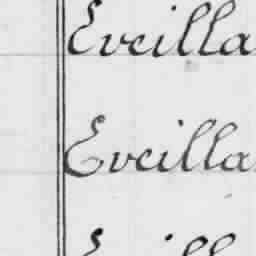 Eveilla
Eveilla